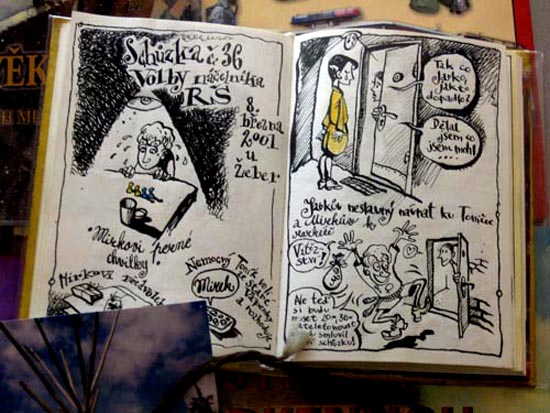 Schůzka č. 36
Volby náčelníka
RŠ
8.
března
2001
u
Žeber
"Mirkovi perné
chvilky"
Mirkovi
Nemocný Tonic volí
Mirek
a rozhoduje
Tak co
Jarko
jak to
dopadlo?
Dělal
jsem co
jsem mohl...
Jarkův neslavný návrat ku Tonice
a Mirkův k
Vítěz-
ství!
Ne teď
si budu
muset 20 x 30 x
zatelefonovat
a smluvil
schůzku!
ĚK